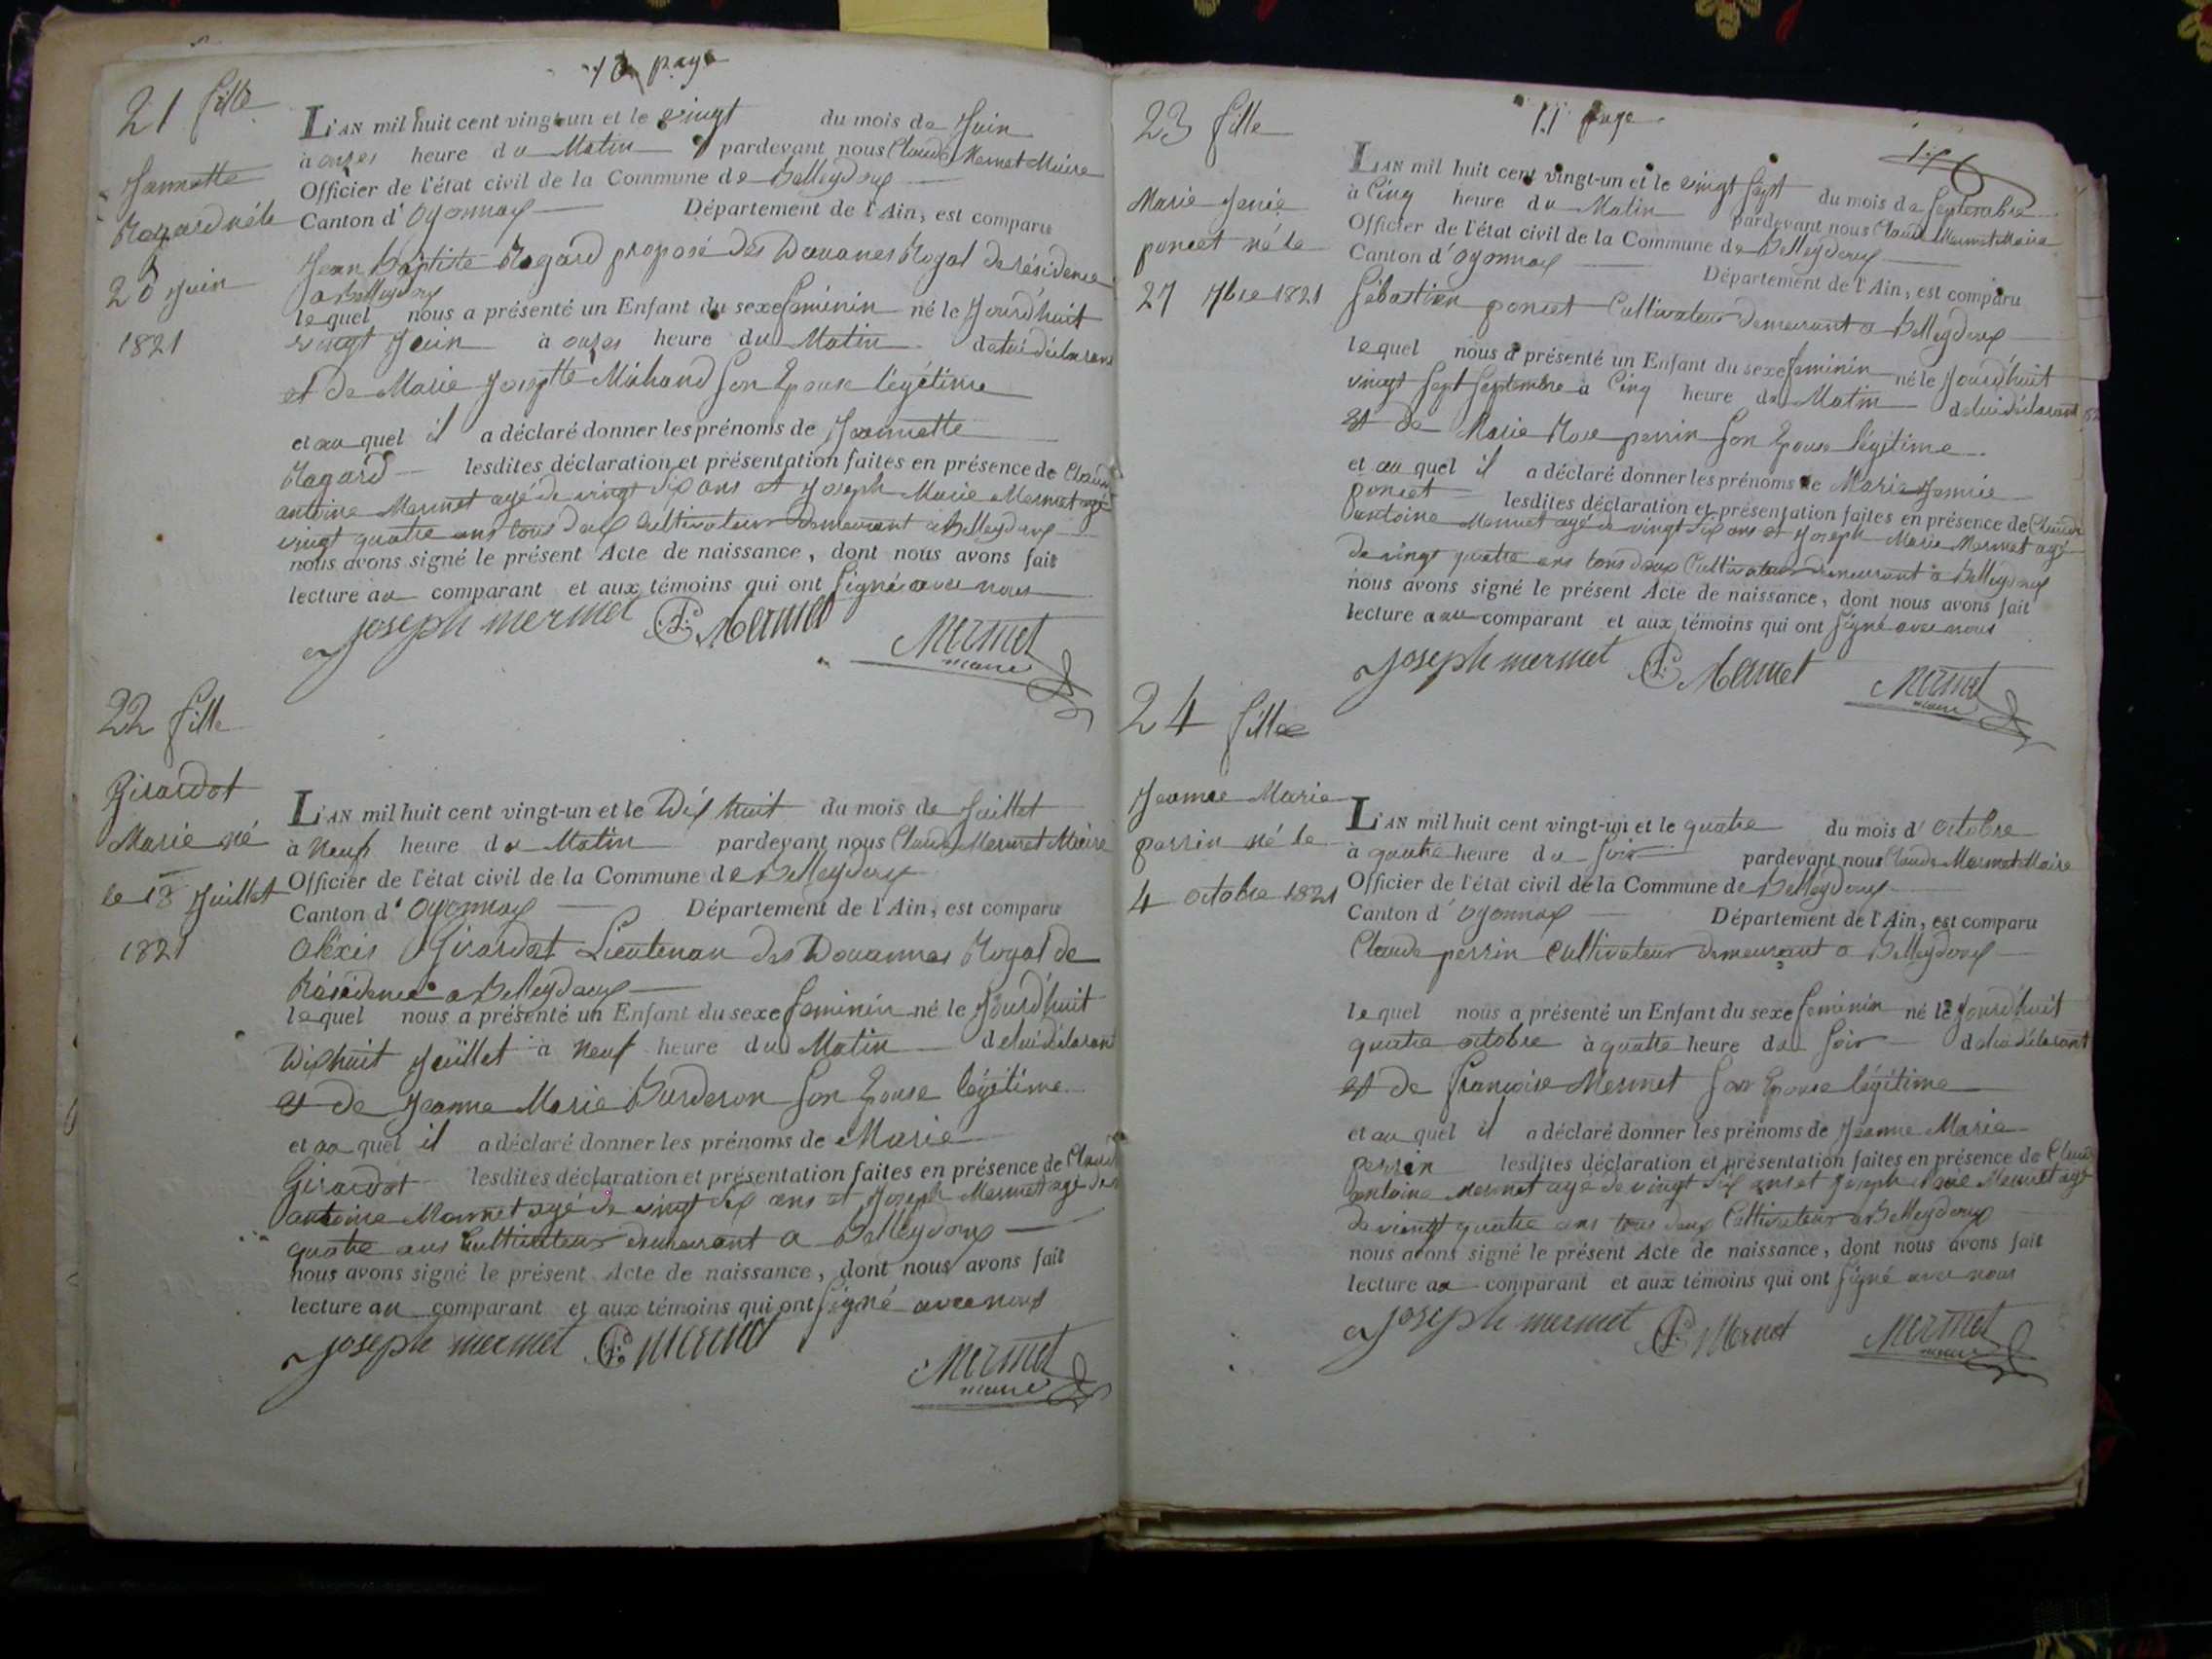 10 page
21 fille
Jannette
Ragard né le
20 Juin
1821
L'AN mil huit cent vingt-un et le vingt du mois de Juin
à onzes heure du Matin pardevant nous Claude Mermet Maire
Officier de l'état civil de la Commune de Belleydoux
Canton d'Oyonnax Département de l'Ain, est comparu
Jean Baptiste Ragard proposé des Douanes Royal de résidence
a Belleydoux
lequel nous a présenté un Enfant du sexe feminin né le Jourd'huit
vingt Juin à onzes heure du Matin de lui déclarant
et de Marie Josephte Michaud son Epouse légétime
et au quel il a déclaré donner les prénoms de Jeannette
Ragard lesdites déclaration et présentation faites en présence de Claude
antoine Mermet agé de vingt six ans et Joseph Marie Mermet agé
vingt quatre ans tous deux Cultivateur demeurant a Belleydoux
nous avons signé le présent Acte de naissance, dont nous avons fait
lecture au comparant et aux témoins qui ont signé avec nous
Joseph mermet Mermet Mermet
maire
22 fille
Girardot
Marie né
le 18 Juillet
1821
L'AN mil huit cent vingt-un et le Dix huit du mois de Juillet
à Neuf heure du Matin pardevant nous Claude Mermet Maire
Officier de l'état civil de la Commune de Belleydoux
Canton d'Oyonnax Département de l'Ain, est comparu
Aléxis Girardot Lieutenan des Douannes Royal de
Résidence a Belleydoux
lequel nous a présenté un Enfant du sexe feminin né le Jourd'huit
Dixhuit Juillet à Neuf heure du Matin de lui déclarant
et de Jeanne Marie Burderon son Epouse légétime
et au quel il a déclaré donner les prénoms de Marie
Girardot lesdites déclaration et présentation faites en présence de Claude
antoine Mermet agé de vingt six ans et Joseph Mermet agé de
quatre ans Cultivateur demeurant a Belleydoux
nous avons signé le présent Acte de naissance, dont nous avons fait
lecture au comparant et aux témoins qui ont signé avec nous
Joseph mermet Mermet Mermet
maire
11 page
23 fille
Marie Jenie
poncet né le
27 7bre 1821
L'AN mil huit cent vingt-un et le vingt sept du mois de Septembre
à Cinq heure du Matin pardevant nous Claude Mermet Maire
Officier de l'état civil de la Commune de Belleydoux
Canton d'Oyonnax Département de l'Ain, est comparu
Sébastien poncet Cultivateur demeurant a Belleydoux
lequel nous a présenté un Enfant du sexe feminin né le Jourd'huit
vingt sept Septembre à Cinq heure du Matin de lui déclarant
et de Marie Rose perrin son Epouse légétime
et au quel il a déclaré donner les prénoms de Marie Jennie
poncet lesdites déclaration et présentation faites en présence de Claude
antoine Mermet agé de vingt six ans et Joseph Marie Mermet agé
de vingt quatre ans tous deux Cultivateur demeurant a Belleydoux
nous avons signé le présent Acte de naissance, dont nous avons fait
lecture au comparant et aux témoins qui ont signé avec nous
Joseph mermet Mermet Mermet
maire
24 fille
Jeanne Marie
perrin né le
4 octobre 1821
L'AN mil huit cent vingt-un et le quatre du mois d'octobre
à quatre heure du soir pardevant nous Claude Mermet Maire
Officier de l'état civil de la Commune de Belleydoux
Canton d'Oyonnax Département de l'Ain, est comparu
Claude perrin Cultivateur demeurant a Belleydoux
lequel nous a présenté un Enfant du sexe feminin né le Jourd'huit
quatre octobre à quatre heure du soir de lui déclarant
et de françoise Mermet son Epouse légitime
et au quel il a déclaré donner les prénoms de Jeanne Marie
perrin lesdites déclaration et présentation faites en présence de Claude
antoine Mermet agé de vingt six ans et Joseph Marie Mermet agé
de vingt quatre ans tous deux Cultivateur a Belleydoux
nous avons signé le présent Acte de naissance, dont nous avons fait
lecture au comparant et aux témoins qui ont signé avec nous
Joseph mermet Mermet Mermet
maire